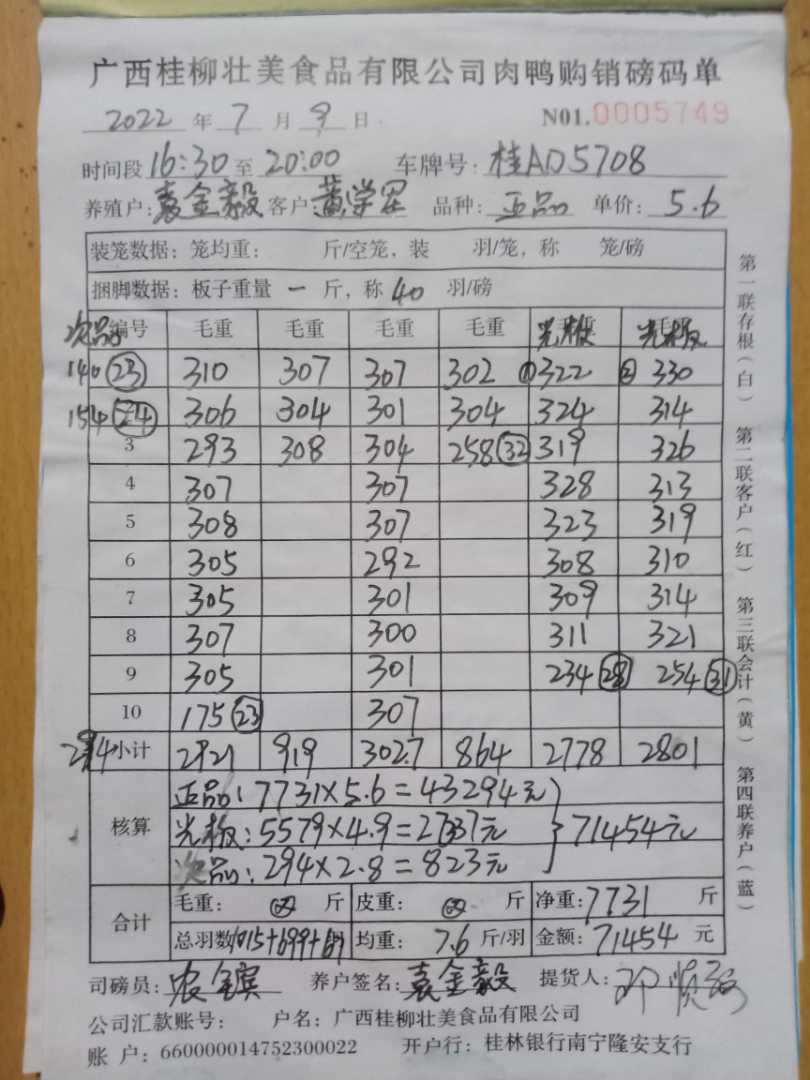 广西桂柳壮美食品有限公司肉鸭购销磅码单
2022 年 7 月 9 日 N01.0005749
时间段 16:30 至 20:00 车牌号: 桂AD5708
养殖户: 袁金毅 客户 黄学 品种: 正品 单价: 5.6
装笼数据: 笼均重: 斤/空笼, 装 羽/笼, 称 笼/磅
捆脚数据: 板子重量 一 斤, 称 40 羽/磅
次品 编号 毛重 毛重 毛重 毛重 光板 光板
140 (23) 310 307 307 302 ① 322 ② 330
154 (24) 306 304 301 304 324 314
3 293 308 304 258 (32) 319 326
4 307 307 328 313
5 308 307 323 319
6 305 292 308 310
7 305 301 309 314
8 307 300 311 321
9 305 301 234 (28) 254 (31)
10 175 (23) 307
294 小计 2921 919 3027 864 2778 2801
核算 正品: 7731×5.6=43294元
光板: 5579×4.9=27337元 71454元
次品: 294×2.8=823元
合计 毛重: 斤 皮重: 斤 净重: 7731 斤
总羽数 1015+699+ 均重: 7.6 斤/羽 金额: 71454 元
司磅员: 农 养户签名: 袁金毅 提货人: 邓
公司汇款账号: 户名: 广西桂柳壮美食品有限公司
账 户: 660000014752300022 开户行: 桂林银行南宁隆安支行
第一联存根(白) 第二联客户(红) 第三联会计(黄) 第四联养户(蓝)